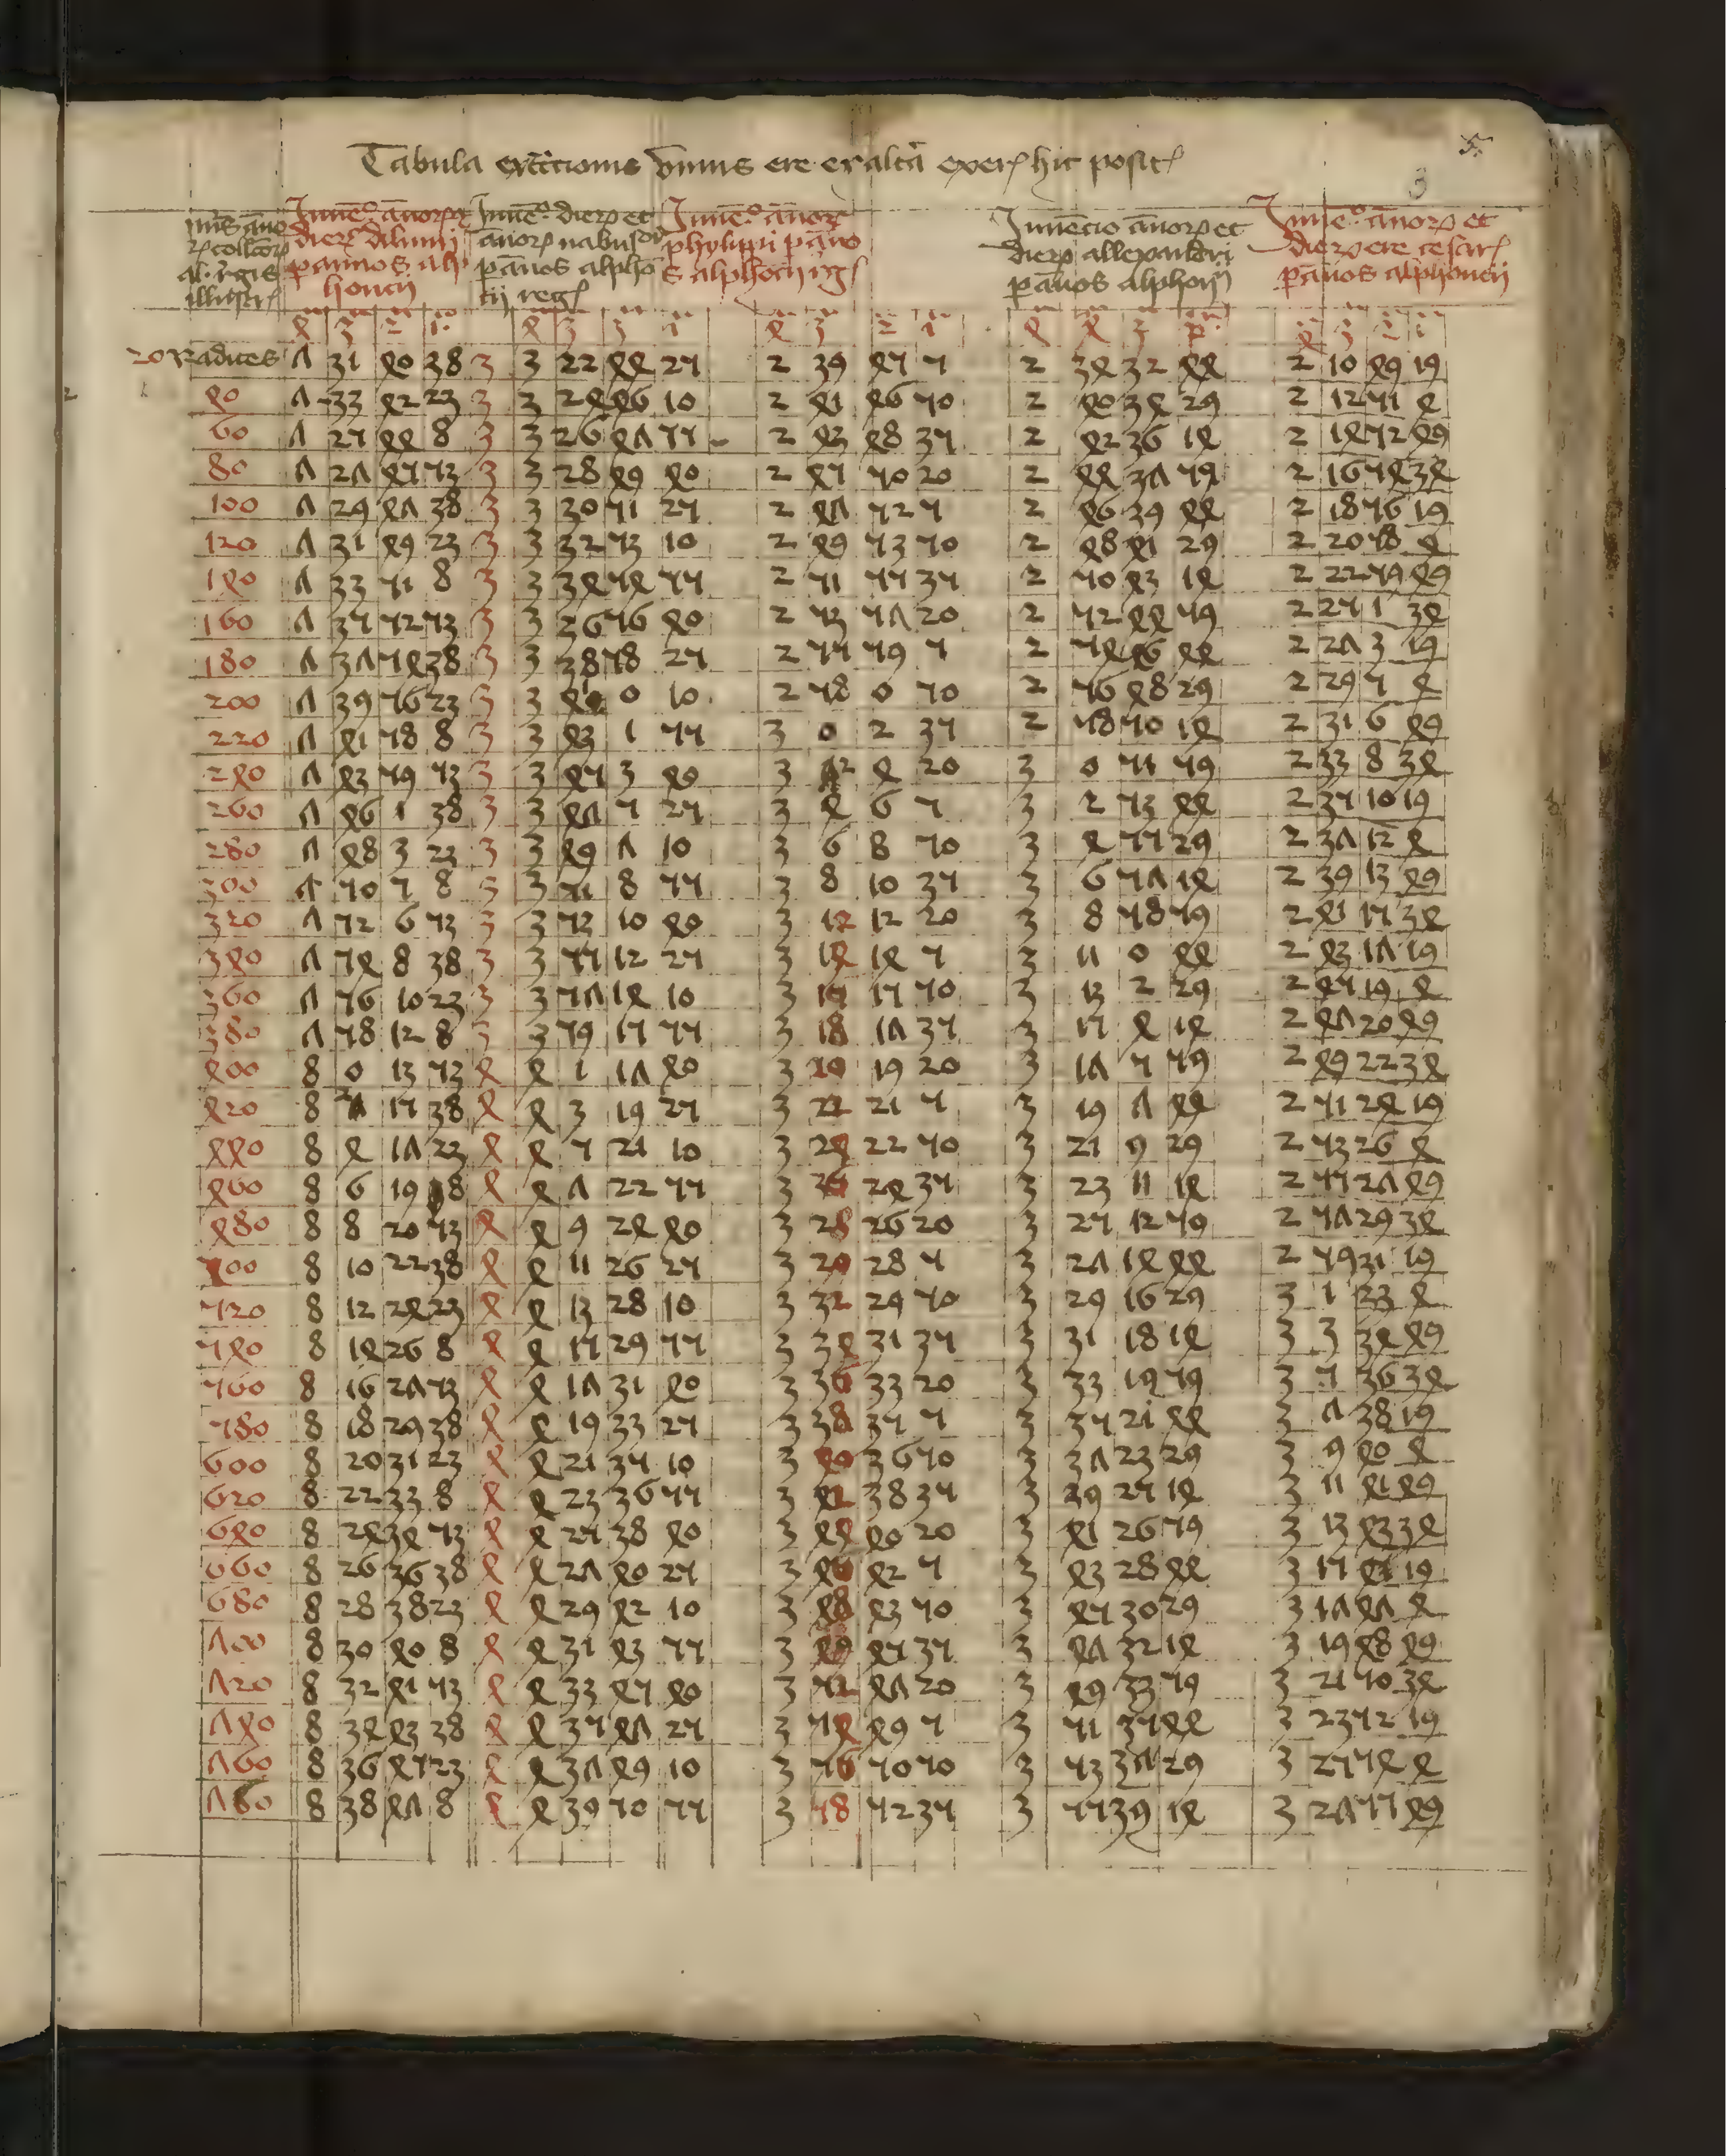 5
3
Tabula ere hic
annorum et dierum diluuii per annos alphoncii
dierum et annorum per annos alphoncii reg
annorum phylippi per annos alphoncii
Inuencio annorum et dierum allexandri per annos alphoncii
annorum et dierum ere cesaris per annos alphoncii
4 3 2 1 4 3 3 1 4 3 2 1 4 4 3 4 3 2 1
20 Radices 7 31 40 38 3 3 22 44 25 2 39 45 5 2 34 32 44 2 10 49 19
40 7 33 42 23 3 3 24 46 10 2 41 46 50 2 40 34 29 2 12 51 4
60 7 25 44 8 3 3 26 47 55 2 43 48 35 2 42 36 14 2 14 52 49
80 7 27 45 53 3 3 28 49 40 2 45 50 20 2 44 37 59 2 16 54 34
100 7 29 47 38 3 3 30 51 25 2 47 52 5 2 46 39 44 2 18 56 19
120 7 31 49 23 3 3 32 53 10 2 49 53 50 2 48 41 29 2 20 58 4
140 7 33 51 8 3 3 34 54 55 2 51 55 35 2 50 43 14 2 22 59 49
160 7 35 52 53 3 3 36 56 40 2 53 57 20 2 52 44 59 2 25 1 34
180 7 37 54 38 3 3 38 58 25 2 55 59 5 2 54 46 44 2 27 3 19
200 7 39 56 23 3 3 41 0 10 2 58 0 50 2 56 48 29 2 29 5 4
220 7 41 58 8 3 3 43 1 55 3 0 2 35 2 58 50 14 2 31 6 49
240 7 43 59 53 3 3 45 3 40 3 2 4 20 3 0 51 59 2 33 8 34
260 7 46 1 38 3 3 47 5 25 3 4 6 5 3 2 53 44 2 35 10 19
280 7 48 3 23 3 3 49 7 10 3 6 8 50 3 4 55 29 2 37 12 4
300 7 50 5 8 3 3 51 8 55 3 8 10 35 3 6 57 14 2 39 13 49
320 7 52 6 53 3 3 53 10 40 3 12 12 20 3 8 58 59 2 41 15 34
340 7 54 8 38 3 3 55 12 25 3 14 14 5 3 11 0 44 2 43 17 19
360 7 56 10 23 3 3 57 14 10 3 15 15 50 3 13 2 29 2 45 19 4
380 7 58 12 8 3 3 59 15 55 3 18 17 35 3 15 4 14 2 47 20 49
400 8 0 13 53 4 4 1 17 40 3 19 19 20 3 17 5 59 2 49 22 34
420 8 2 15 38 4 4 3 19 25 3 22 21 5 3 19 7 44 2 51 24 19
440 8 4 17 23 4 4 5 21 10 3 24 22 50 3 21 9 29 2 53 26 4
460 8 6 19 8 4 4 7 22 55 3 26 24 35 3 23 11 14 2 55 27 49
480 8 8 20 53 4 4 9 24 40 3 28 26 20 3 25 12 59 2 57 29 34
500 8 10 22 38 4 4 11 26 25 3 29 28 5 3 27 14 44 2 59 31 19
520 8 12 24 23 4 4 13 28 10 3 32 29 50 3 29 16 29 3 1 33 4
540 8 14 26 8 4 4 15 29 55 3 34 31 35 3 31 18 14 3 3 34 49
560 8 16 27 53 4 4 17 31 40 3 36 33 20 3 33 19 59 3 5 36 34
580 8 18 29 38 4 4 19 33 25 3 38 35 5 3 35 21 44 3 7 38 19
600 8 20 31 23 4 4 21 35 10 3 40 36 50 3 37 23 29 3 9 40 4
620 8 22 33 8 4 4 23 36 55 3 42 38 35 3 39 25 14 3 11 41 49
640 8 24 34 53 4 4 25 38 40 3 44 40 20 3 41 26 59 3 13 43 34
660 8 26 36 38 4 4 27 40 25 3 46 42 5 3 43 28 44 3 15 45 19
680 8 28 38 23 4 4 29 42 10 3 48 43 50 3 45 30 29 3 17 47 4
700 8 30 40 8 4 4 31 43 55 3 49 45 35 3 47 32 14 3 19 48 49
720 8 32 41 53 4 4 33 45 40 3 52 47 20 3 49 33 59 3 21 50 34
740 8 34 43 38 4 4 35 47 25 3 54 49 5 3 51 35 44 3 23 52 19
760 8 36 45 23 4 4 37 49 10 3 56 50 50 3 53 37 29 3 25 54 4
780 8 38 47 8 4 4 39 50 55 3 58 52 35 3 55 39 14 3 27 55 49